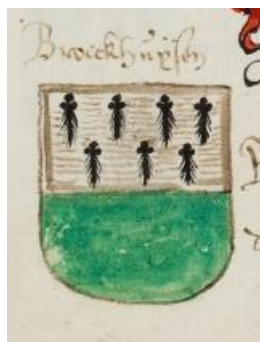 Broeckhuÿsen